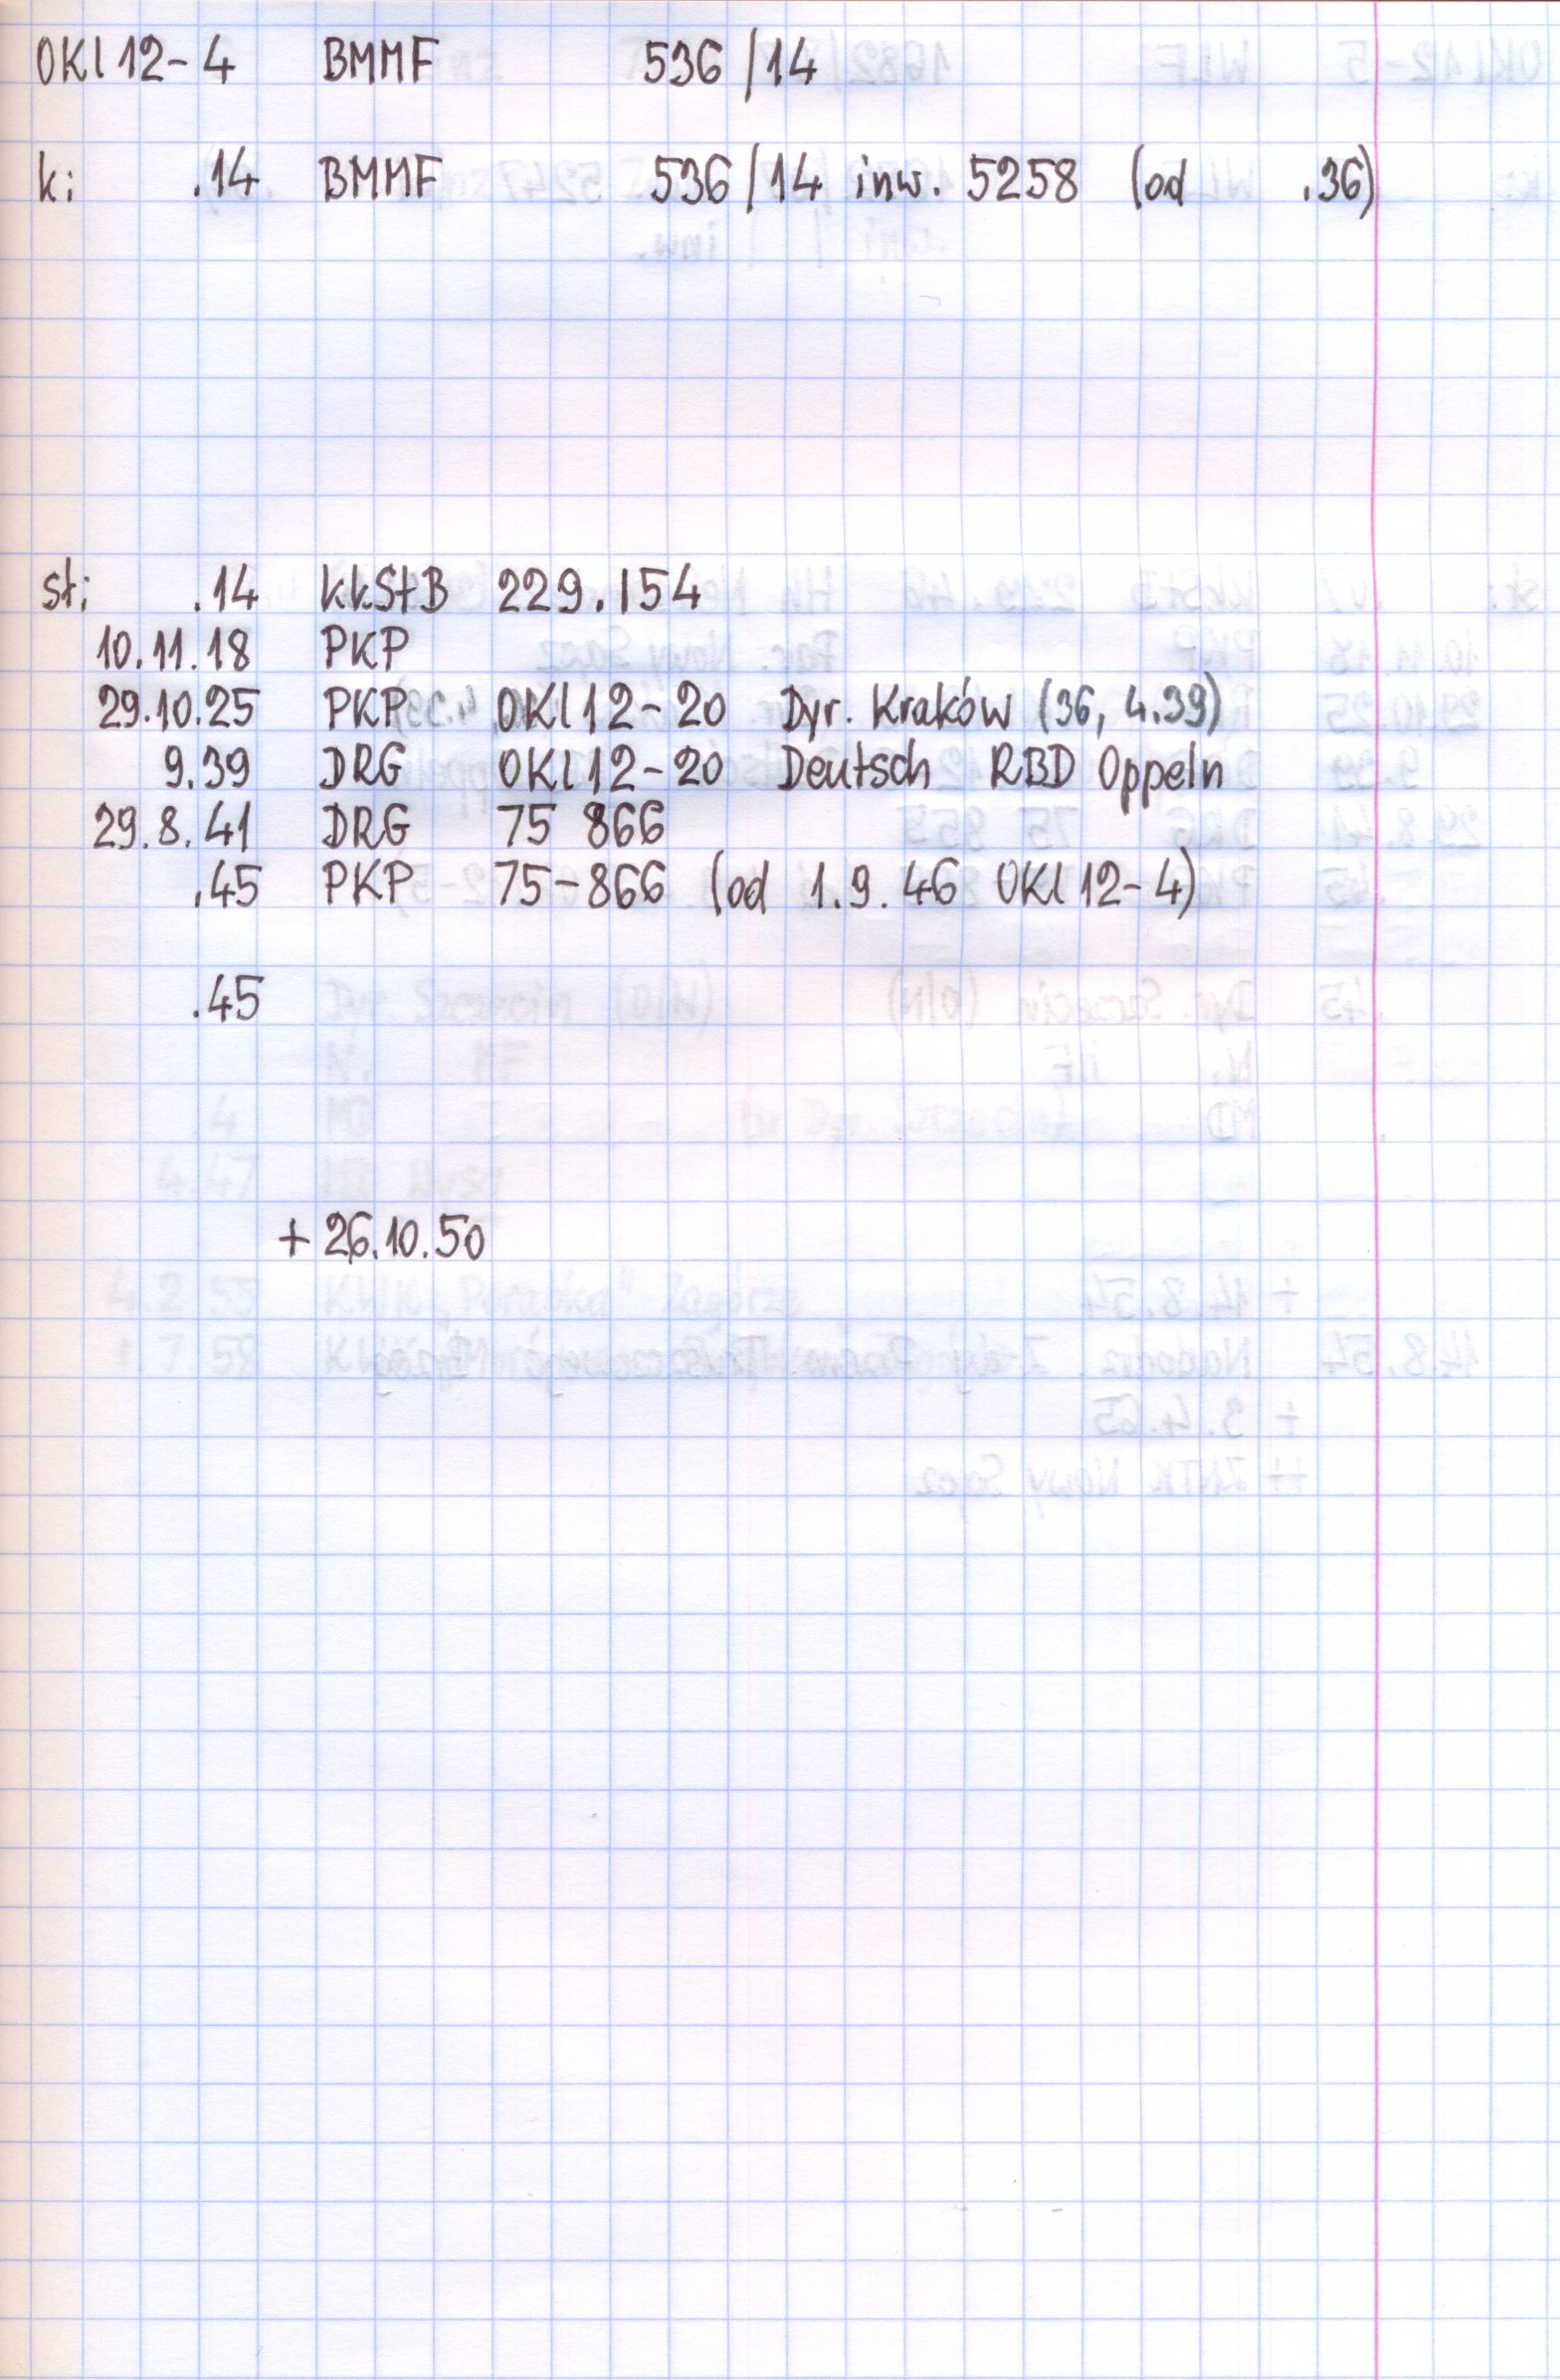 OKl12-4 BMMF 536/14
k: .14 BMMF 536/14 inw. 5258 (od .36)
st: .14 kkStB 229.154
10.11.18 PKP
29.10.25 PKP OKl12-20 Dyr. Kraków (36, 4.39)
9.39 DRG OKl12-20 Deutsch RBD Oppeln
29.8.41 DRG 75 866
.45 PKP 75-866 (od 1.9.46 OKl12-4)
.45
+ 26.10.50